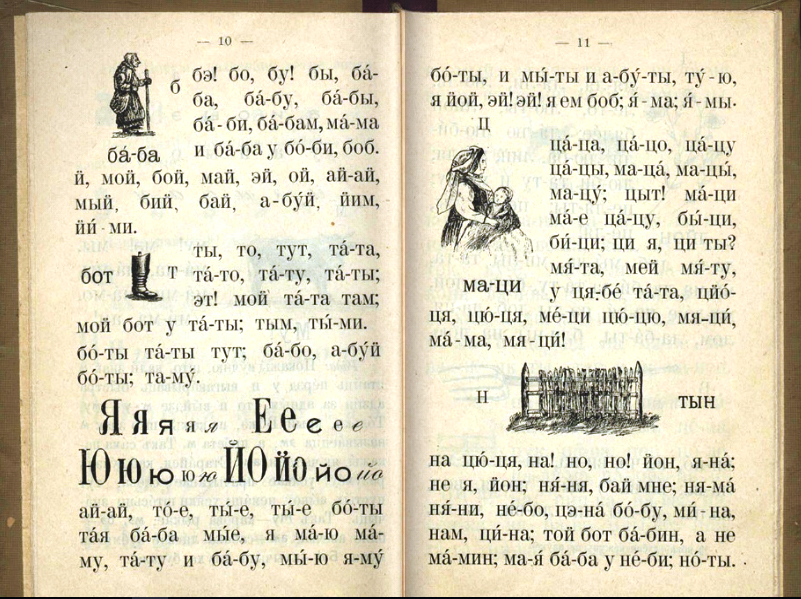 — 10 —
б бэ! бо, бу! бы, ба́-
ба, ба́-бу, ба́-бы,
ба́-би, ба́-бам, ма́-ма
ба́-ба и ба́-ба у бо́-би, боб.
й, мой, бой, май, эй, ой, ай-ай,
мый, бий, бай, а-бу́й, йим,
йи́-ми.
ты, то, тут, та́-та,
бот т та́-то, та́-ту, та́-ты;
эт! мой та́-та там;
мой бот у та́-ты; тым, ты́-ми.
бо́-ты та́-ты тут; ба́-бо, а-бу́й
бо́-ты; та-му́.
Я я я я я Е е е е е
Ю ю ю ю ю ЙО йо йо йо
ай-ай, то́-е, ты́-е, ты́-е бо́-ты
та́я ба́-ба мы́е, я ма́-ю ма́-
му, та́-ту и ба́-бу, мы́-ю я-му́
— 11 —
бо́-ты, и мы́-ты и а-бу́-ты, ту́-ю,
я йой, эй! эй! я ем боб; я́-ма; я́-мы.
Ц
ца́-ца, ца́-цо, ца́-цу
ца́-цы, ма-ца́, ма-цы́,
ма-цу́; цыт! ма́-ци
ма́-е ца́-цу, бы́-ци,
би́-ци; ци я, ци ты?
мя́-та, мей мя́-ту,
ма-ци у ця́-бе та́-та, цйо́-
ця, цю́-ця, ме́-ци цю́-цю, мя-ци́,
ма́-ма, мя-ци́!
н тын
на цю́-ця, на! но, но! йон, я-на́;
не я, йон; ня́-ня, бай мне; ня-ма́
ня́-ни, не́-бо, цэ-на́ бо́-бу, ми́-на,
нам, ци́-на; той бот ба́-бин, а не
ма́-мин; ма-я́ ба́-ба у не́-би; но́-ты.